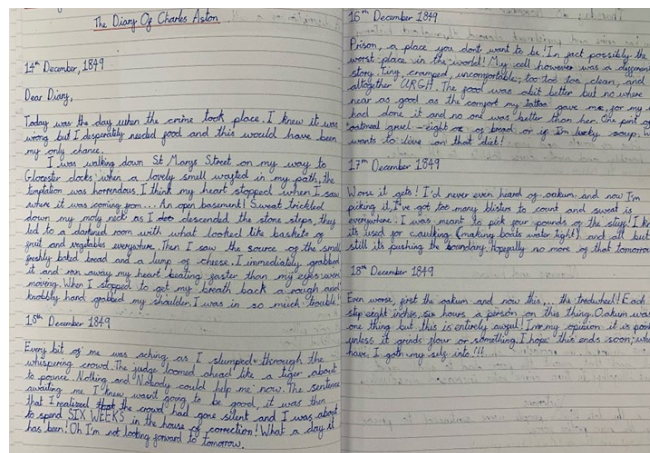 The Diary Of Charles Aston
14th December, 1849
Dear Diary,
Today was the day when the crime took place. I knew it was
wrong but I desperately needed food and this would have been
my only chance.
I was walking down St Marys Street on my way to
Glocester docks when a lovely smell wafted in my path, the
temptation was horrendous. I think my heart stopped when I saw
where it was coming from... An open basement! Sweat trickled
down my moly neck as I descended the stone steps, they
led to a darkened room with what looked like baskets of
fruit and vegetables everywhere. Then I saw the source of the smell
freshly baked bread and a lump of cheese. I immediately grabbed
it and ran away my heart beating faster than my eyes were
moving. When I stopped to get my breath back a rough and
knobbly hand grabbed my shoulder. I was in so much trouble!
15th December 1849
Every bit of me was aching as I slumped through the
whispering crowd. The judge loomed ahead like a tiger about
to pounce. Nothing and Nobody could help me now. The sentence
awaiting me I knew wasn't going to be good, it was then
that I realized that the crowd had gone silent and I was about
to spend SIX WEEKS in the house of correction! What a day it
has been! Oh I'm not looking forward to tomorrow.
16th December 1849
Prison, a place you dont want to be! In fact possibly the
worst place in the world! My cell however was a different
story. Tiny, cramped, uncomfortable, too too too clean, and
altogether URGH. The food was abit better but no where
near as good as the comfort my gave me, for my
had done it and no one was better than her. One pint of
oatmeal gruel - eight oz of bread or if Im lucky soup.
wants to live on that diet!
17th December 1849
Worse it gets! I'd never even heard of oakum and now I'm
picking it, I've got too many blisters to count and sweat is
everywhere. I was meant to pick four pounds of the stuff! I
its used for caulking (making boats water tight) and all but
still its pushing the boundary. Hopefully no more of that tomorrow
18th December 1849
Even worse, first the oakum and now this... the treadwheel! Each
step eight inches, six hours a person on this thing. Oakum was
one thing but this is entirely awful! In my opinion it is
unless it grinds flour or something. I hope this ends soon,
have I goth my self into!!!